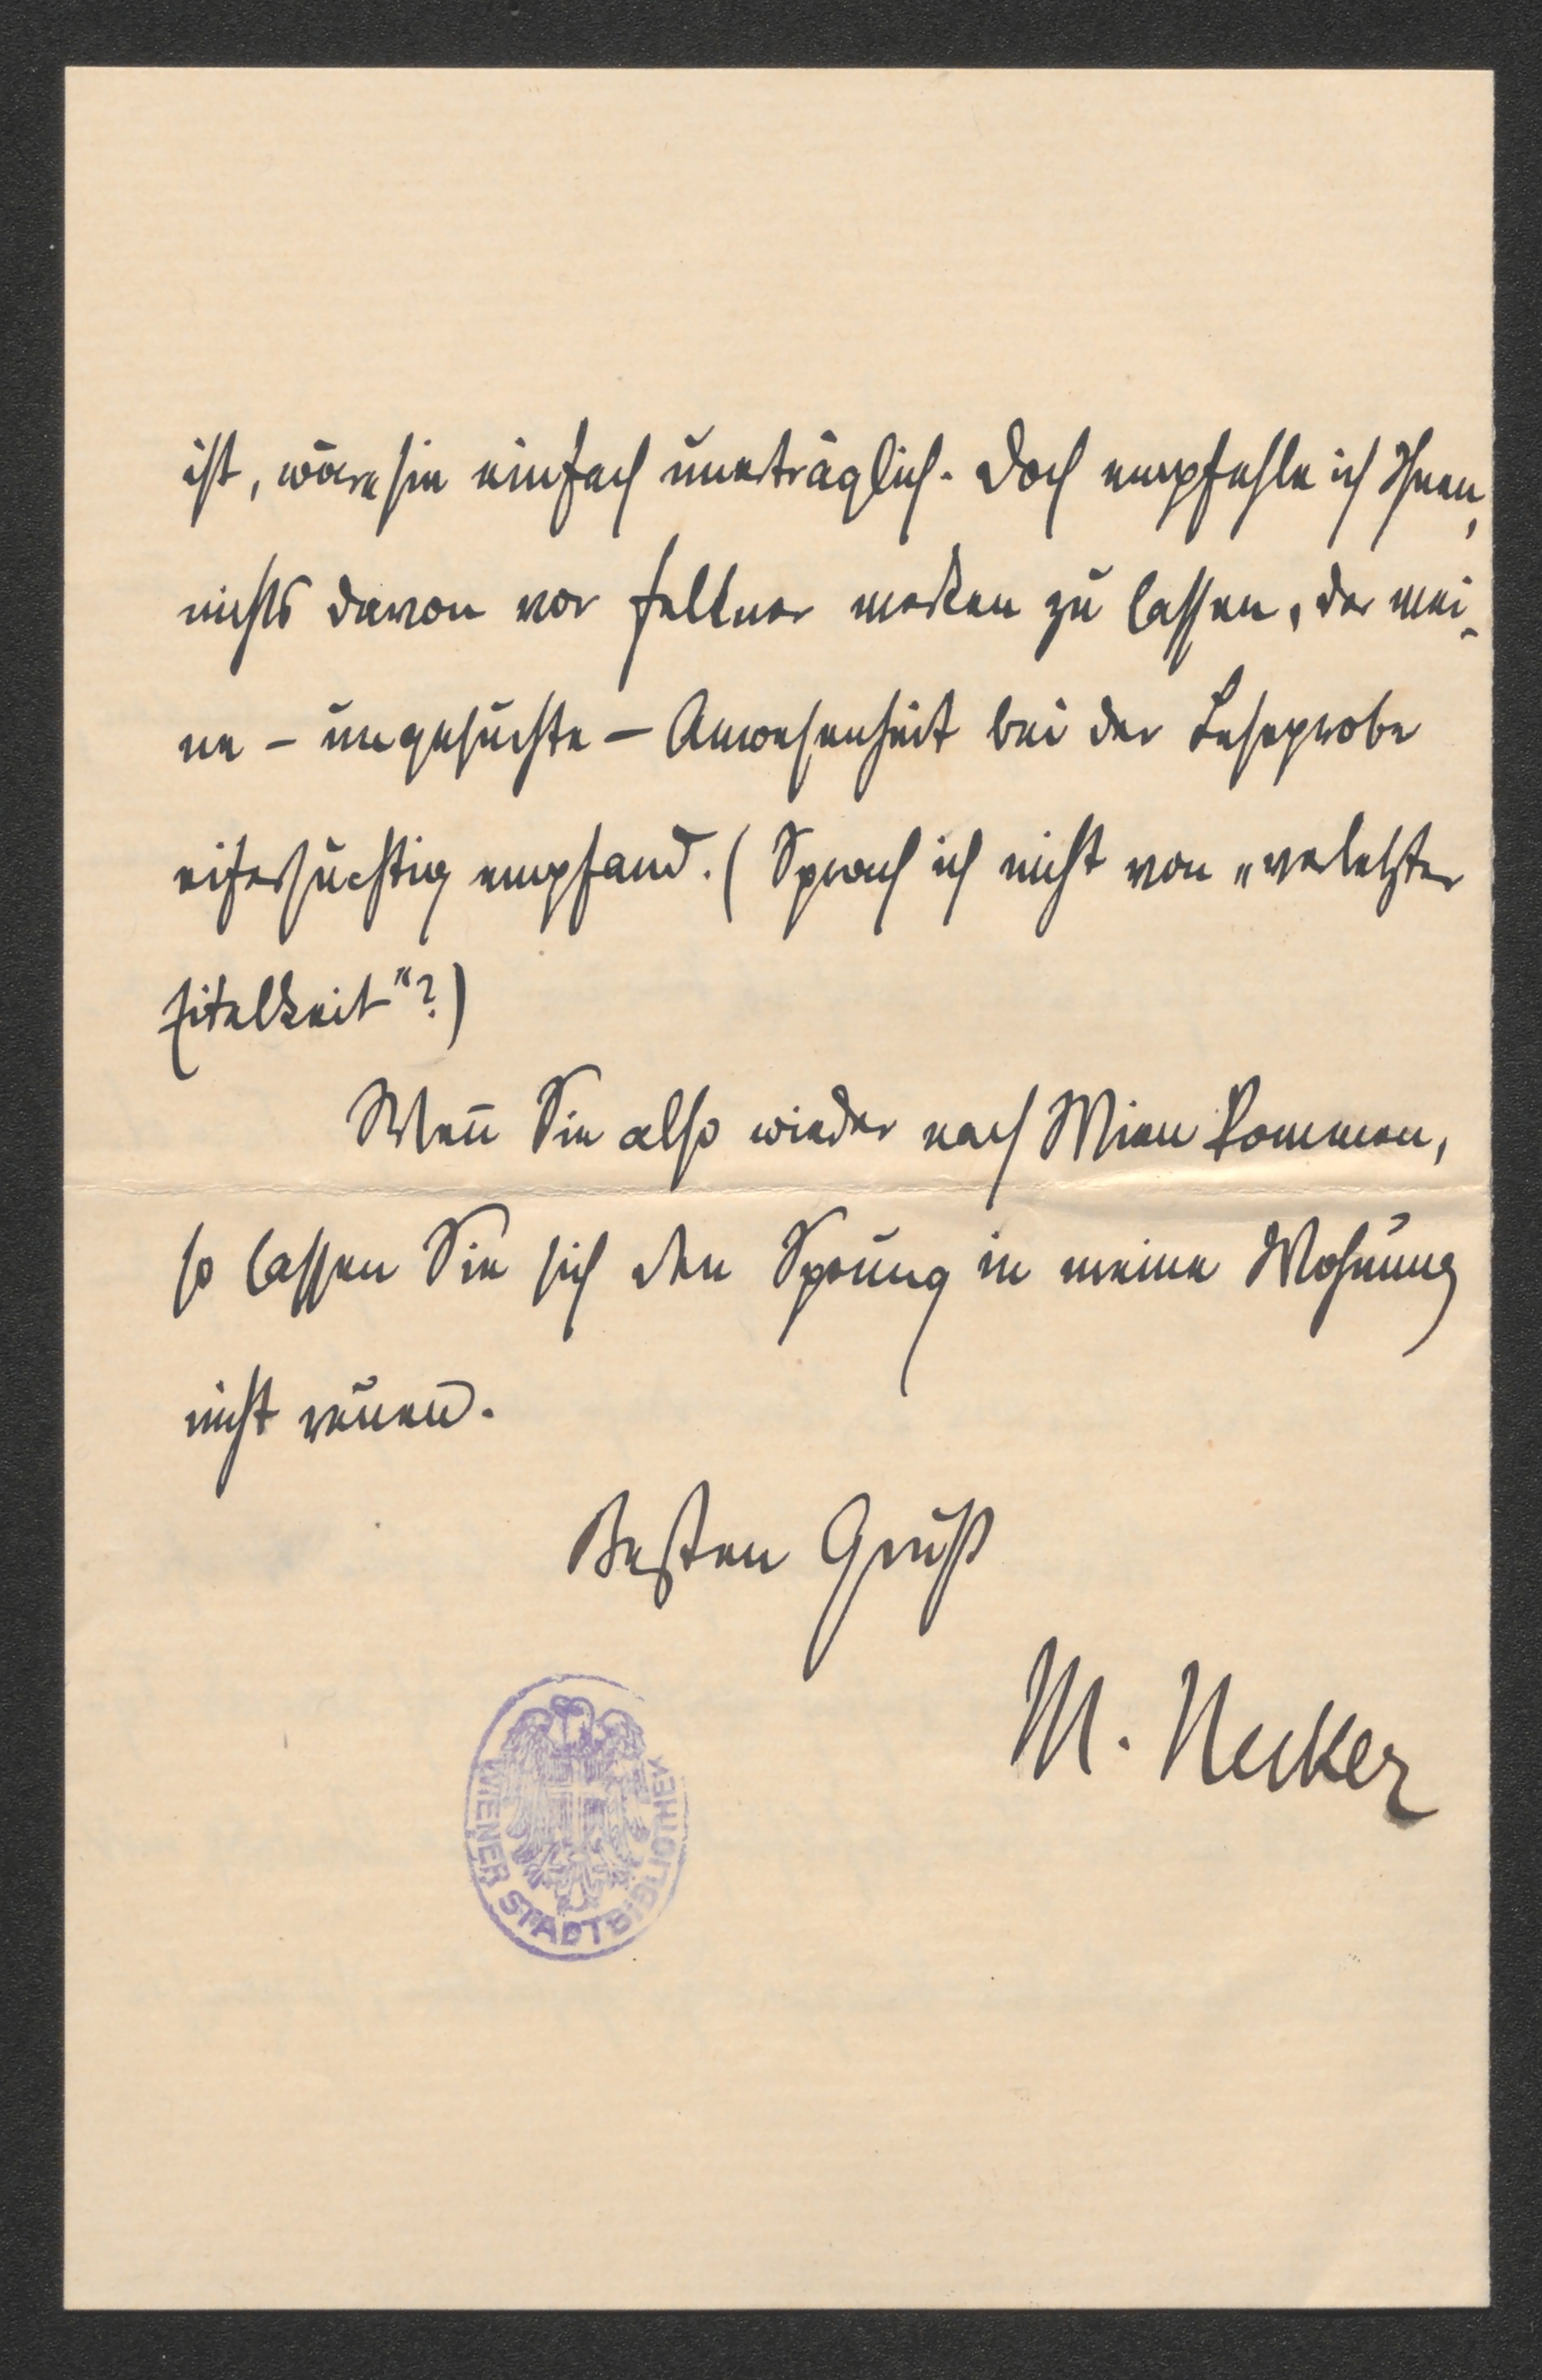 ist, wäre sie einfach unerträglich. Doch empfehle ich Ihnen,
nichts davon vor Fellner merken zu lassen, der mei-
ne – ungesuchte – Anwesenheit bei der Leseprobe
eifersüchtig empfand. (Sprach ich nicht von „verletzter
Eitelkeit“?)
Weñ Sie also wieder nach Wien kommen,
so lassen Sie sich den Sprung in meine Wohnung
nicht reuen.
Besten Gruß
M. Necker
WIENER STADTBIBLIOTHEK